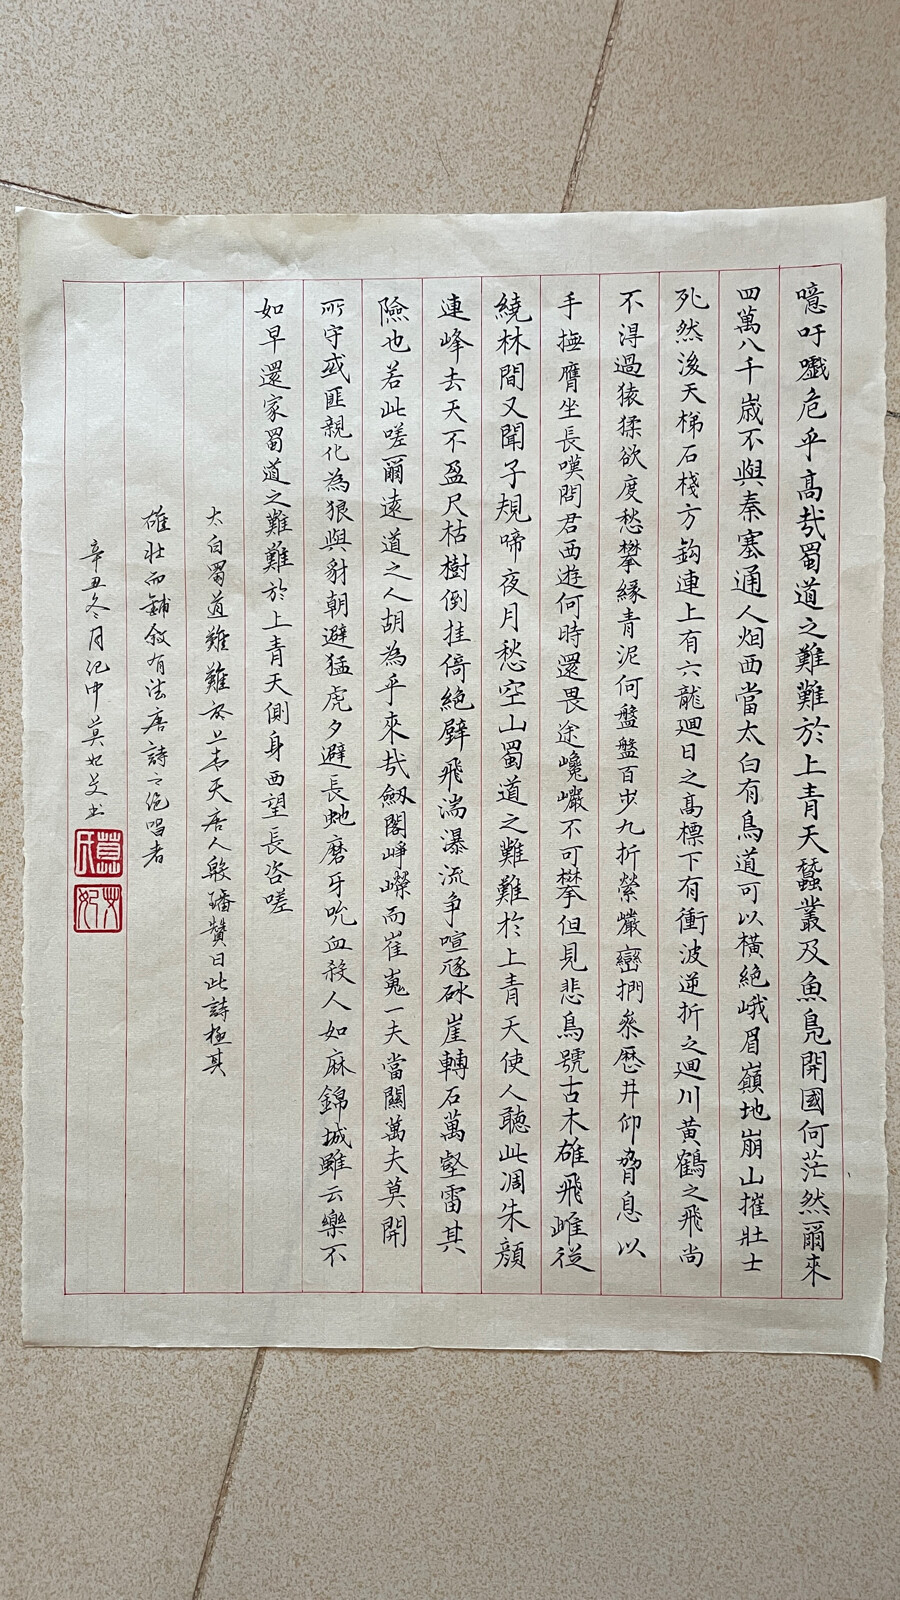 噫吁嚱危乎高哉蜀道之難難於上青天蠶叢及魚鳧開國何茫然爾來
四萬八千歲不與秦塞通人烟西當太白有鳥道可以橫絕峨眉巔地崩山摧壯士
死然後天梯石棧方鈎連上有六龍廻日之高標下有衝波逆折之廻川黃鶴之飛尚
不得過猿猱欲度愁攀緣青泥何盤盤百步九折縈巖巒捫參歷井仰脅息以
手撫膺坐長嘆問君西遊何時還畏途巉巖不可攀但見悲鳥號古木雄飛雌從
繞林間又聞子規啼夜月愁空山蜀道之難難於上青天使人聽此凋朱顏
連峰去天不盈尺枯樹倒挂倚絕壁飛湍瀑流爭喧豗砅崖轉石萬壑雷其
險也若此嗟爾遠道之人胡為乎來哉劒閣崢嶸而崔嵬一夫當關萬夫莫開
所守或匪親化為狼與豺朝避猛虎夕避長虵磨牙吮血殺人如麻錦城雖云樂不
如早還家蜀道之難難於上青天側身西望長咨嗟
太白蜀道難難於上青天唐人殷璠贊曰此詩極其
雄壯而鋪敘有法唐詩之絕唱者
辛丑冬月紀中莫妃艾書